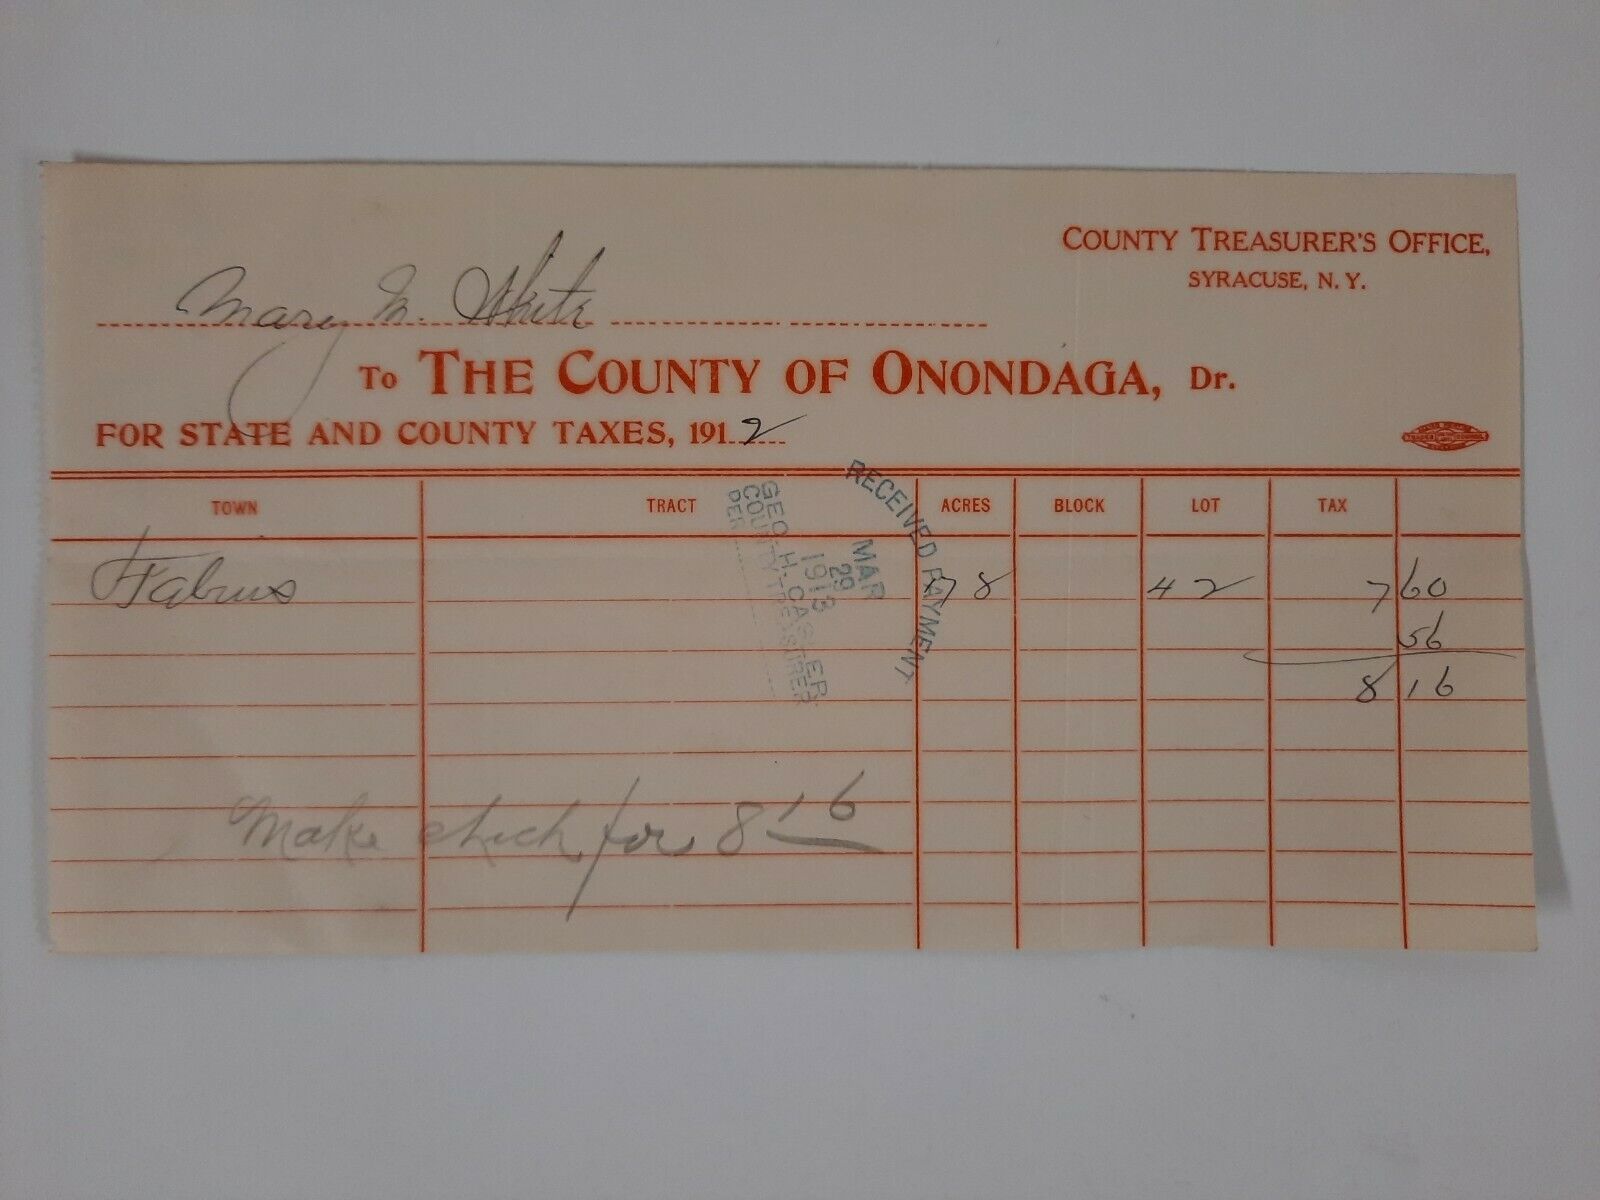 COUNTY TREASURER'S OFFICE,
SYRACUSE, N. Y.
Mary M. White
TO THE COUNTY OF ONONDAGA, Dr.
FOR STATE AND COUNTY TAXES, 1912
TOWN TRACT ACRES BLOCK LOT TAX
Fabius 78 42 7 60
56
8 16
RECEIVED PAYMENT
MAR
29
1913
GEO. H. CASLER
COUNTY TREASURER
PER
Make check for 8 16